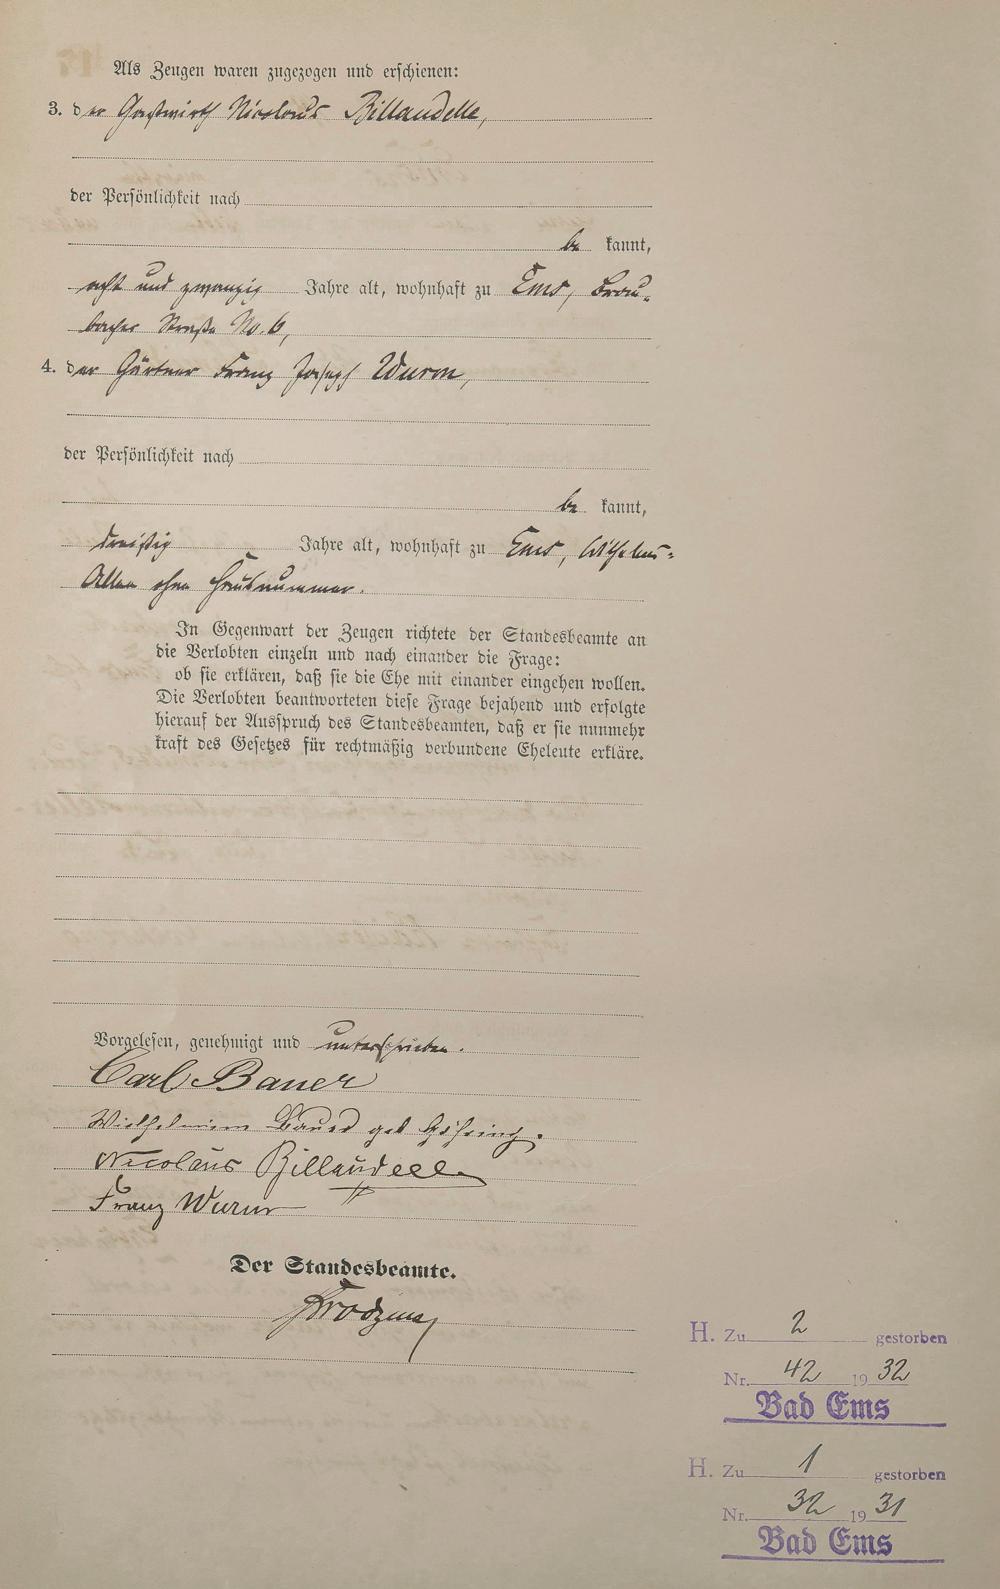 Als Zeugen waren zugezogen und erschienen:
3. der Gastwirth Nicolaus Billaudelle,
der Persönlichkeit nach
be kannt,
acht und zwanzig Jahre alt, wohnhaft zu Ems, Brau-
bacher Straße No. 6,
4. der Gärtner Franz Joseph Wurm,
der Persönlichkeit nach
be kannt,
dreißig Jahre alt, wohnhaft zu Ems, Wilhelms-
Allee ohne Hausnummer.
In Gegenwart der Zeugen richtete der Standesbeamte an
die Verlobten einzeln und nach einander die Frage:
ob sie erklären, daß sie die Ehe mit einander eingehen wollen.
Die Verlobten beantworteten diese Frage bejahend und erfolgte
hierauf der Ausspruch des Standesbeamten, daß er sie nunmehr
kraft des Gesetzes für rechtmäßig verbundene Eheleute erkläre.
Vorgelesen, genehmigt und unterschrieben.
Carl Bauer
Wilhelmine Bauer geb Göhring.
Nicolaus Billaudelle
Franz Wurm
Der Standesbeamte.
H. Zu 2 gestorben
Nr. 42 1932
Bad Ems
H. Zu 1 gestorben
Nr. 32 1931
Bad Ems